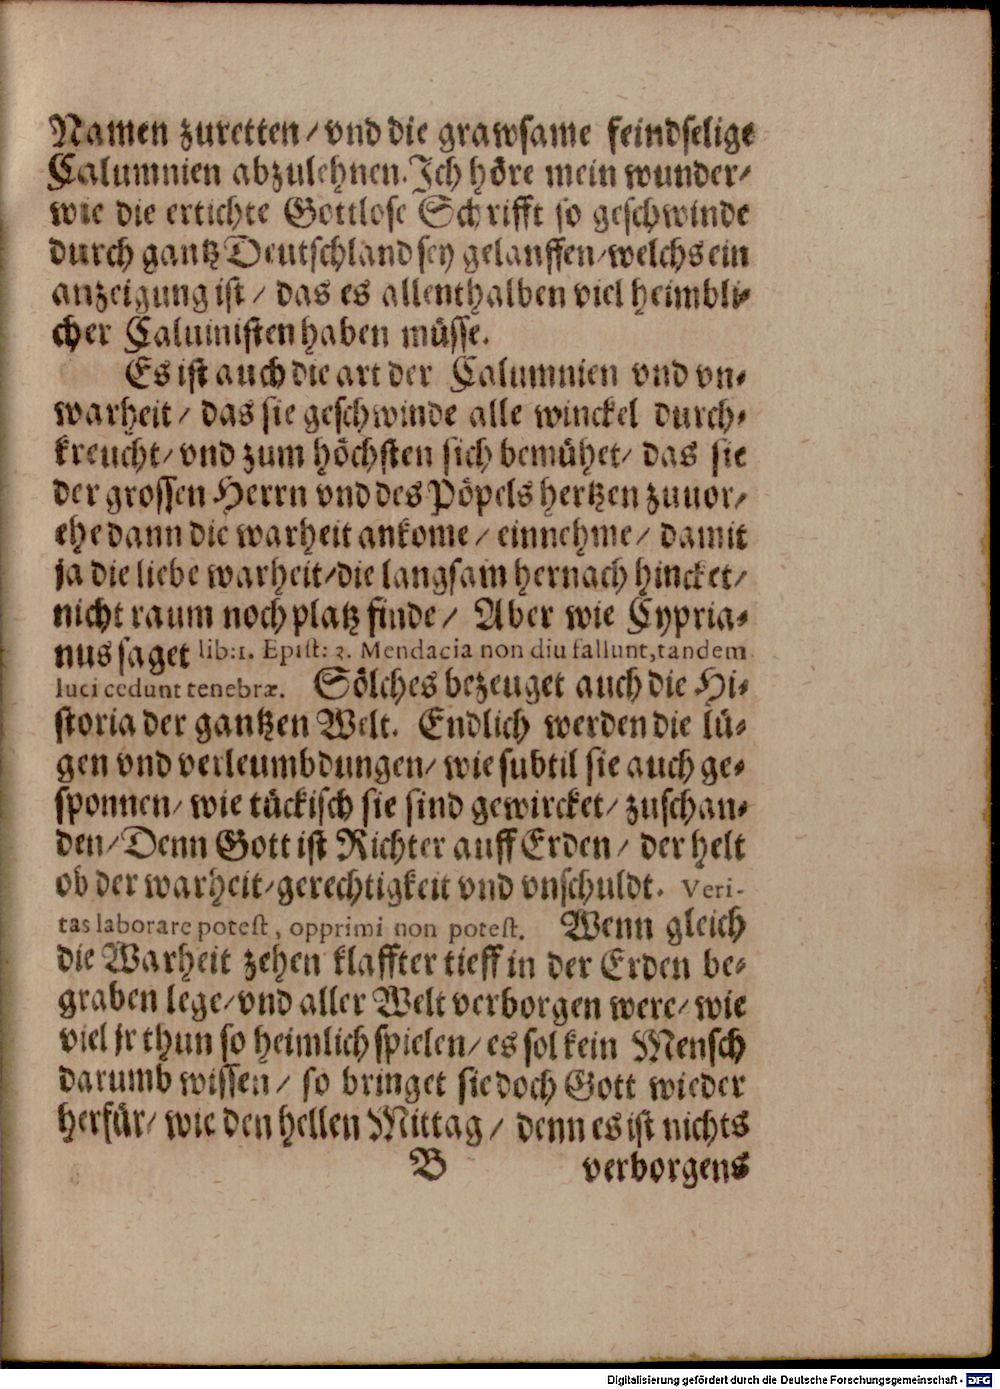 Namen zuretten/ vnd die grawsame feindselige
Calumnien abzulehnen. Ich höre mein wunder/
wie die ertichte Gottlose Schrifft so geschwinde
durch gantz Deutschland sey gelauffen/ welchs ein
anzeigung ist/ das es allenthalben viel heimbli-
cher Caluinisten haben müsse.
Es ist auch die art der Calumnien vnd vn-
warheit/ das sie geschwinde alle winckel durch-
kreucht/ vnd zum höchsten sich bemühet/ das sie
der grossen Herrn vnd des Pöpels hertzen zuuor/
ehe dann die warheit ankome/ einnehme/ damit
ja die liebe warheit/ die langsam hernach hincket/
nicht raum noch platz finde/ Aber wie Cypria-
nus saget lib:1. Epist: 3. Mendacia non diu fallunt, tandem
luci cedunt tenebræ. Sölches bezeuget auch die Hi-
storia der gantzen Welt. Endlich werden die lü-
gen vnd verleumbdungen/ wie subtil sie auch ge-
sponnen/ wie tückisch sie sind gewircket/ zuschan-
den/ Denn Gott ist Richter auff Erden/ der helt
ob der warheit/ gerechtigkeit vnd vnschuldt. Veri-
tas laborare potest, opprimi non potest. Wenn gleich
die Warheit zehen klaffter tieff in der Erden be-
graben lege/ vnd aller Welt verborgen were/ wie
viel jr thun so heimlich spielen/ es sol kein Mensch
darumb wissen/ so bringet sie doch Gott wieder
herfür/ wie den hellen Mittag/ denn es ist nichts
B verborgens
Digitalisierung gefördert durch die Deutsche Forschungsgemeinschaft - DFG